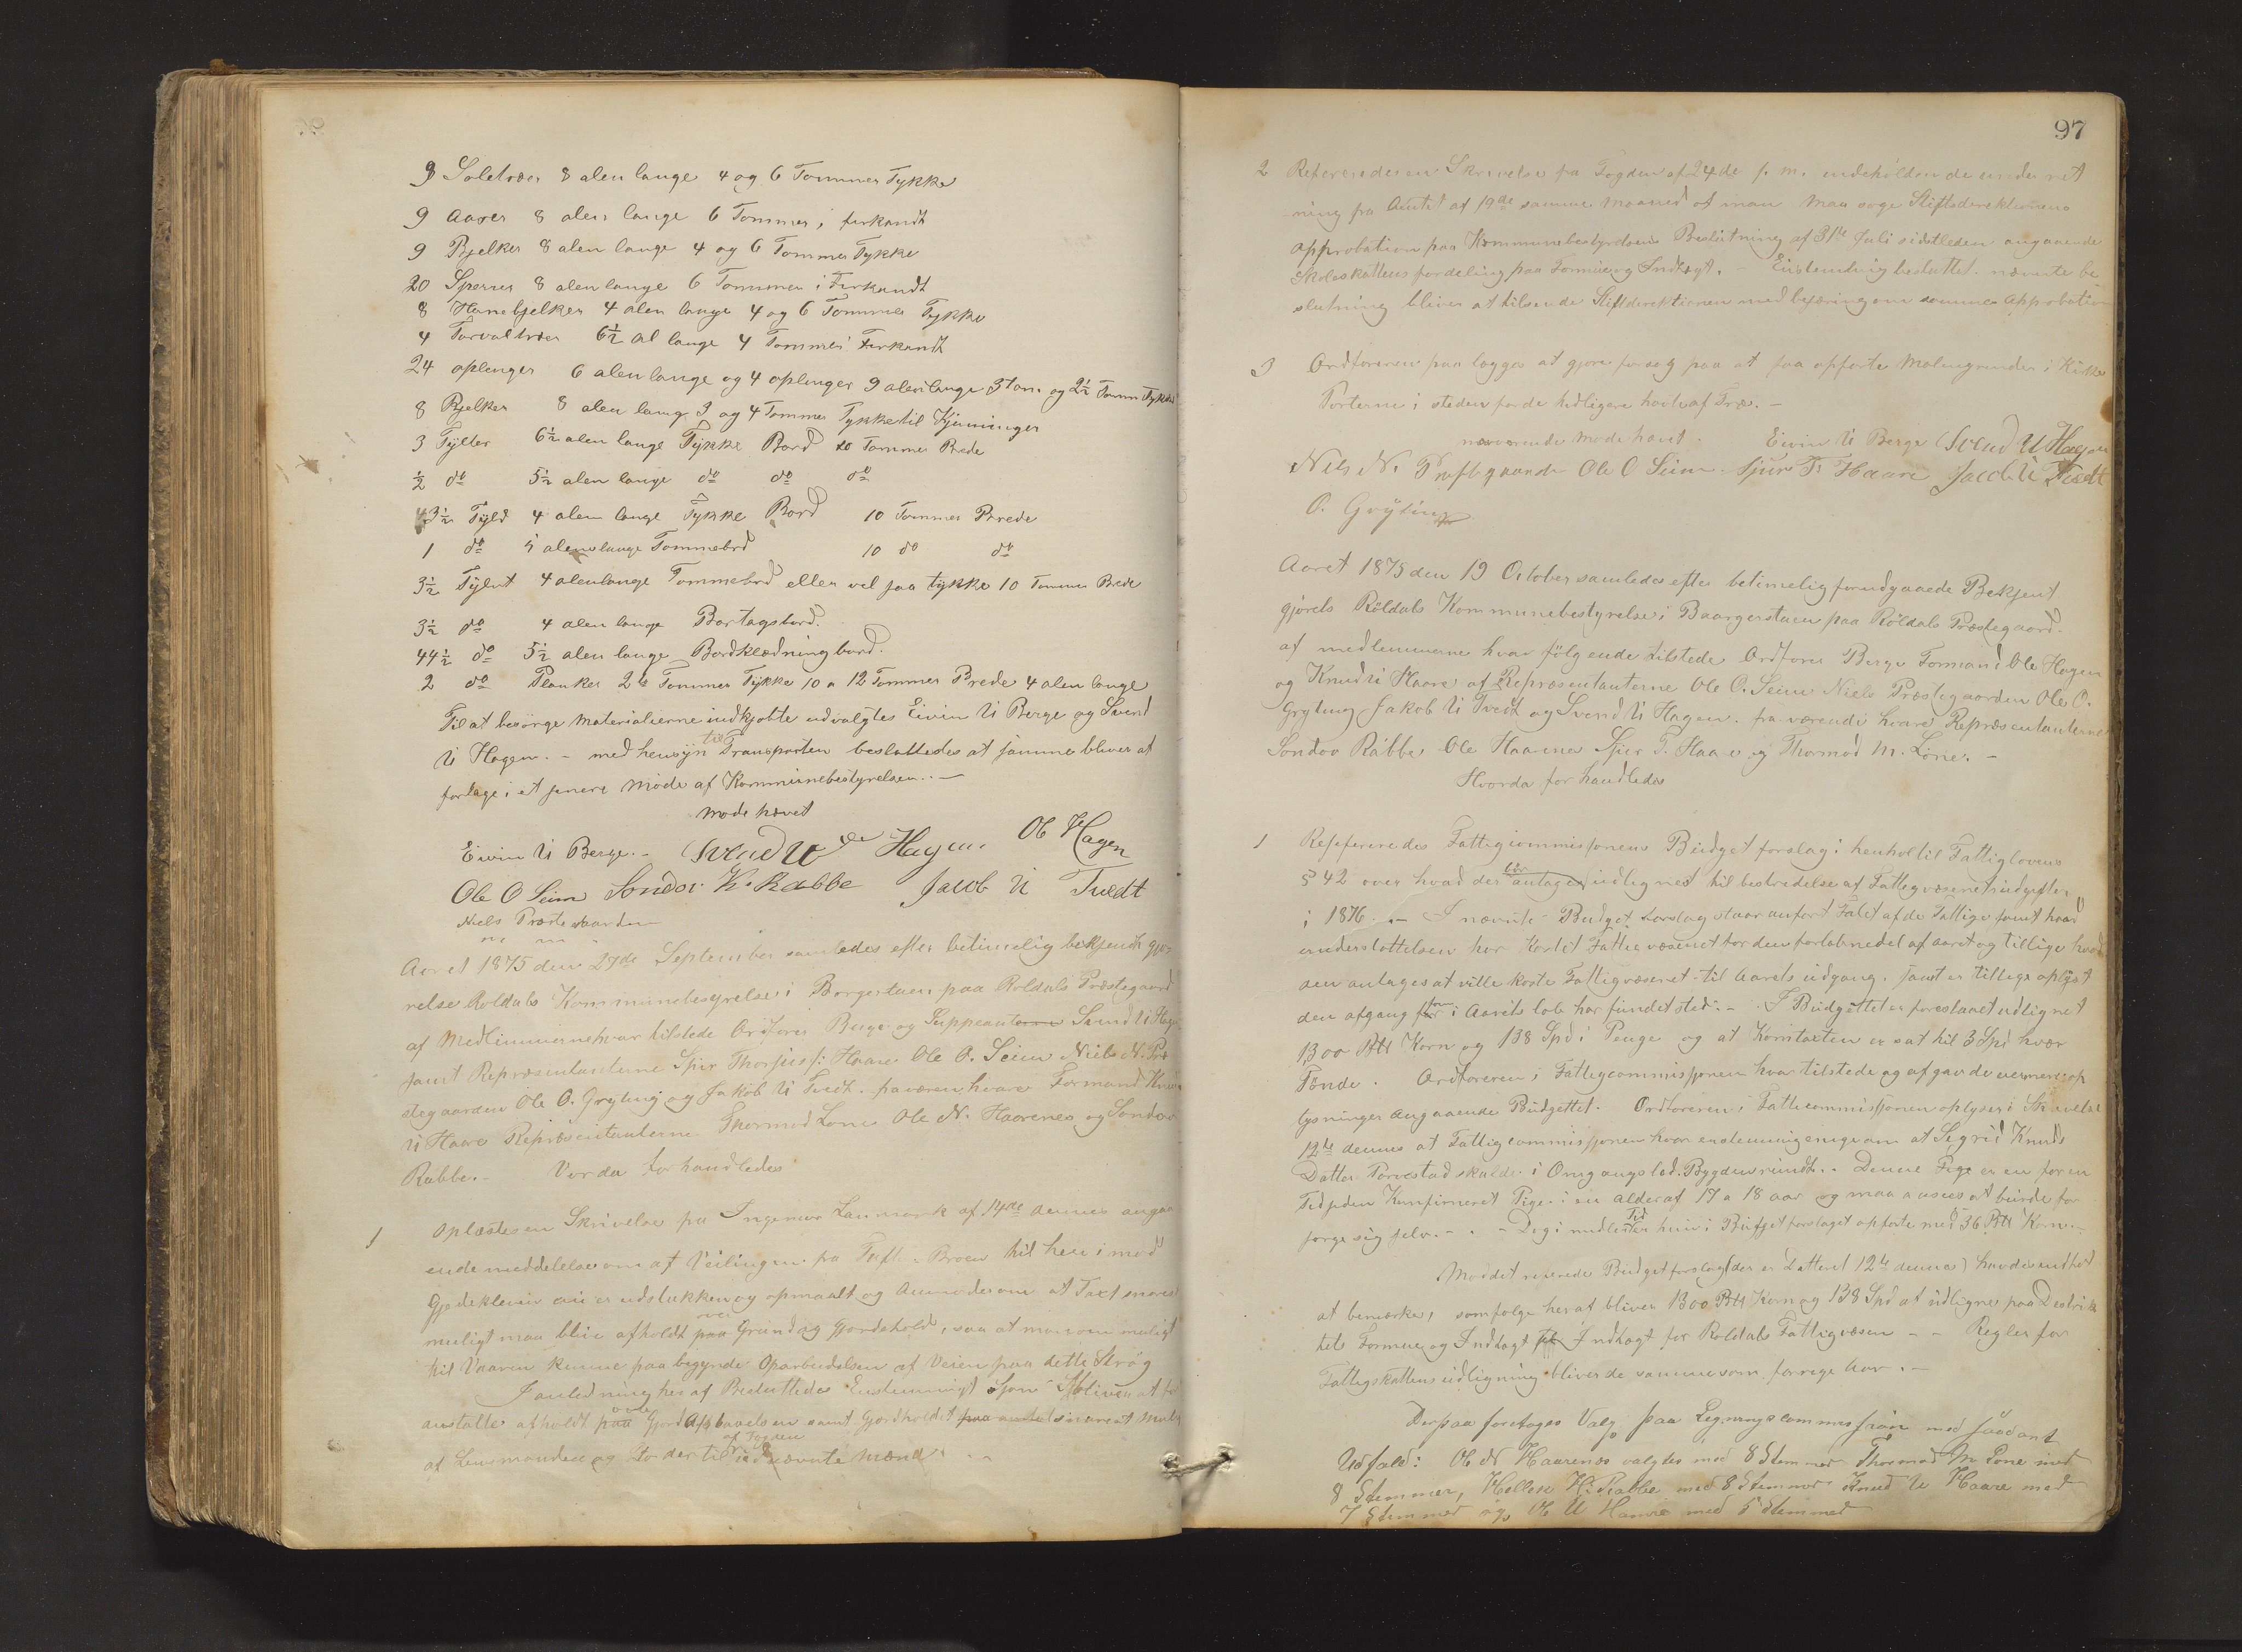 9 Soletræer 8 alen lange 4 og 6 Tommer Tykke
9 Aaser 8 alen lange 6 Tommer i firkandt
9 Bjelker 8 alen lange 4 og 6 Tommer Tykke
20 Sperrer 8 alen lange 6 Tommer i Firkandt
8 Hanebjelker 4 alen lange 4 og 6 Tommer Tykke
4 Torvaltræer 6½ al lange 4 Tommer i Firkandt
24 oplenger 6 alen lange og 4 oplenger 9 alen lange 3 tom og 2½ Tomm Tykke
8 Bjelker 8 alen lang 3 og 4 Tommer Tykke til Kjæninger
3 Tylter 6½ alen lange Tykke Bord 10 Tommer Brede
½ do 5½ alen lange do do do
3½ Tyld 4 alen lange Tykke Bord 10 Tommer Brede
1 do 5 alen lange Tommebrd 10 do do
3½ Tylvt 4 alen lange Tommebord eller vel saa tykke 10 Tommer Brede
3½ do 4 alen lange Bortagsbord.
44½ do 5½ alen lange Bordklædning bord.
2 do Planker 2 Tommer Tykke 10 a 12 Tommer Brede 4 alen lange
Til at besørge Materialierne indkjøbte udvalgtes Eivin U Berge og Svend
U Hagen. - med hensyn til Transporten besluttedes at samme bliver at
fortage i et senere Møde af Kommunebestyrelsen. -
Mode hævet
Eivin U Berge. - Svend U Hagen. Ol Hagen
Ole O Seim Sondov K. Rabbe Jacob U Tvedt
Niels Præstegaarden
Aaret 1875 den 27de September samledes efter betimelig bekjendt gjø-
relse Roldals Kommunebestyrelse i Borgerstuen paa Roldals Præstegaard
af Medlimmerne hvar tilstede Ordfører Berge og Suppeant Svend U Hagen
samt Representanterne Sjur Thorjus s: Haare Ole O. Seim Niels N. Præ-
stegaarden Ole O. Gryting og Jakob U Tvedt. fraværen hvare Formand Knud
U Haare Repræsentanterne Thormod Lone Ole N. Haarenes og Sondov
Rabbe. - Vor da forhandledes
1 Oplæstes en Skrivelse fra Ingeniør Lanmark af 14de dennes angaa
ende meddelelse om at Veilingen fra Tuft - Broen til hen i mod
Gjedekleven nu er udstukken og opmaalt og Anmoder om at Taxt snarest
muligt maa blive afholdt over Grund og Gjordehold, saa at man om muligt
til Vaaren kunne paa begynde Oparbeidelsen af Veien paa dette Strøg
I anledning her af Besluttedes Enstemmigt Skjøn bliver at for
anstalte afholdt over Gjord samt Gjordholdet snarest mulig
af Lensmanden og to der til af Fogden udnævnte Mænd. -
97
2 Refereredes en Skrivelse fra Fogden af 24de f. m. indeholdende underret
ning fra Amtet af 19de samme Maaned at man maa søge Stiftsdirektionens
approbation paa Kommunebestyrelsens Beslutning af 31te Juli sidstleden angaaende
Skoleskattens fordeling paa Formue og Indtægt. Enstemmig besluttet. nævnte be
slutning bliver at tilsende Stiftdirektionen med begæring om sammes Approbation
3 Ordføreren paa lagges at gjøre forsøg paa at faa opførte Malmgrinder i Kirke
Porterne i steden for de tidligere havte af Træ. -
nærværende Møde hævet. Eivin U Berge Svend U Hagen
Nils N. Præstegaarden Ole O Seim Sjur T. Haare Jacob U Tvedt
O. Grÿting
Aaret 1875 den 19 October samledes efter betimelig forudgaaede Bekjent
gjørels Røldals Kommunebestyrelse i Baargerstuen paa Røldals Præstegaard.
af medlemmerne hvar følgende tilstede Ordfører Berge Formand Ole Hagen
og Knud U Haare af Repræsentanterne Ole O. Seim Niels Præstegaarden Ole O.
Gryting Jakob U Tvedt og Svend U Hagen. fraværende hvare Repræsentanterne
Sondov Rabbe Ole Haarenes Sjur T. Haare og Thormod M. Lone. -
Hvorda forhandledes
1 Refereredes Fattigcommissjonens Budget forslag i henhol til Fattiglovens
§ 42 over hvad der bør antages udlignes til bestridelse af Fattigvæsenets udgifter
i 1876. - I nævnte Budget forslag staar anført Talet af de Fattige samt hvad
understøttelsen har Kostet Fattigvæsenet for den forløbne del af aaret og tillige hvad
den antages at ville koste Fattigvæsenet til Aarets udgang. samt er tillige oplyst
den afgang som i Aarets løb har fundet sted. - I Budgettet er foreslaaet udlignet
1300 Pttr Korn og 138 Spd i Penge og at Korntaxten er sat til 3 Spd hver
Tønde. Ordføreren i Fattigcommissjonen hvar tilstede og afgav de nærmere op
lysninger angaaende Budgettet. Ordføreren i Fatticommissjonen oplyser i Skrivelse
12te dennes at Fattigcommissjonen hvar enstemmig enige om at Sigrid Knuds
Datter Torvestad skulde i Omgangs lad. Bygden rundt. - Denne Pige er en for en
Tid siden Kunfirmeret Pige i en alder af 17 a 18 aar og maa ansees at burde for
sørge sig selv. - - Dog i midlertid er hun i Budgetforslaget opførte med 36 Pttr Korn. -
Mod det refererede Budgetforslag (der er Datteret 12te dennes) havdes intet
at bemærke, som følge heraf bliver 1300 Pttr Korn og 138 Spd at udligne paa Destrik
tets Formue og Indtægt for Roldals Fattigvæsen - - Regler for
Fattigskattens udligning bliver de samme som forrige Aar. -
Derpaa foretoges Valg paa Legningscommissjon med saadant
Udfald: Ol N Haarenes valgtes med 8 Stemmer Thormod M Lone med
8 Stemmer, Helleik H. Rabbe med 8 Stemmer Knud U Haare med
7 Stemmer og Ol U Haare med 5 Stemmer